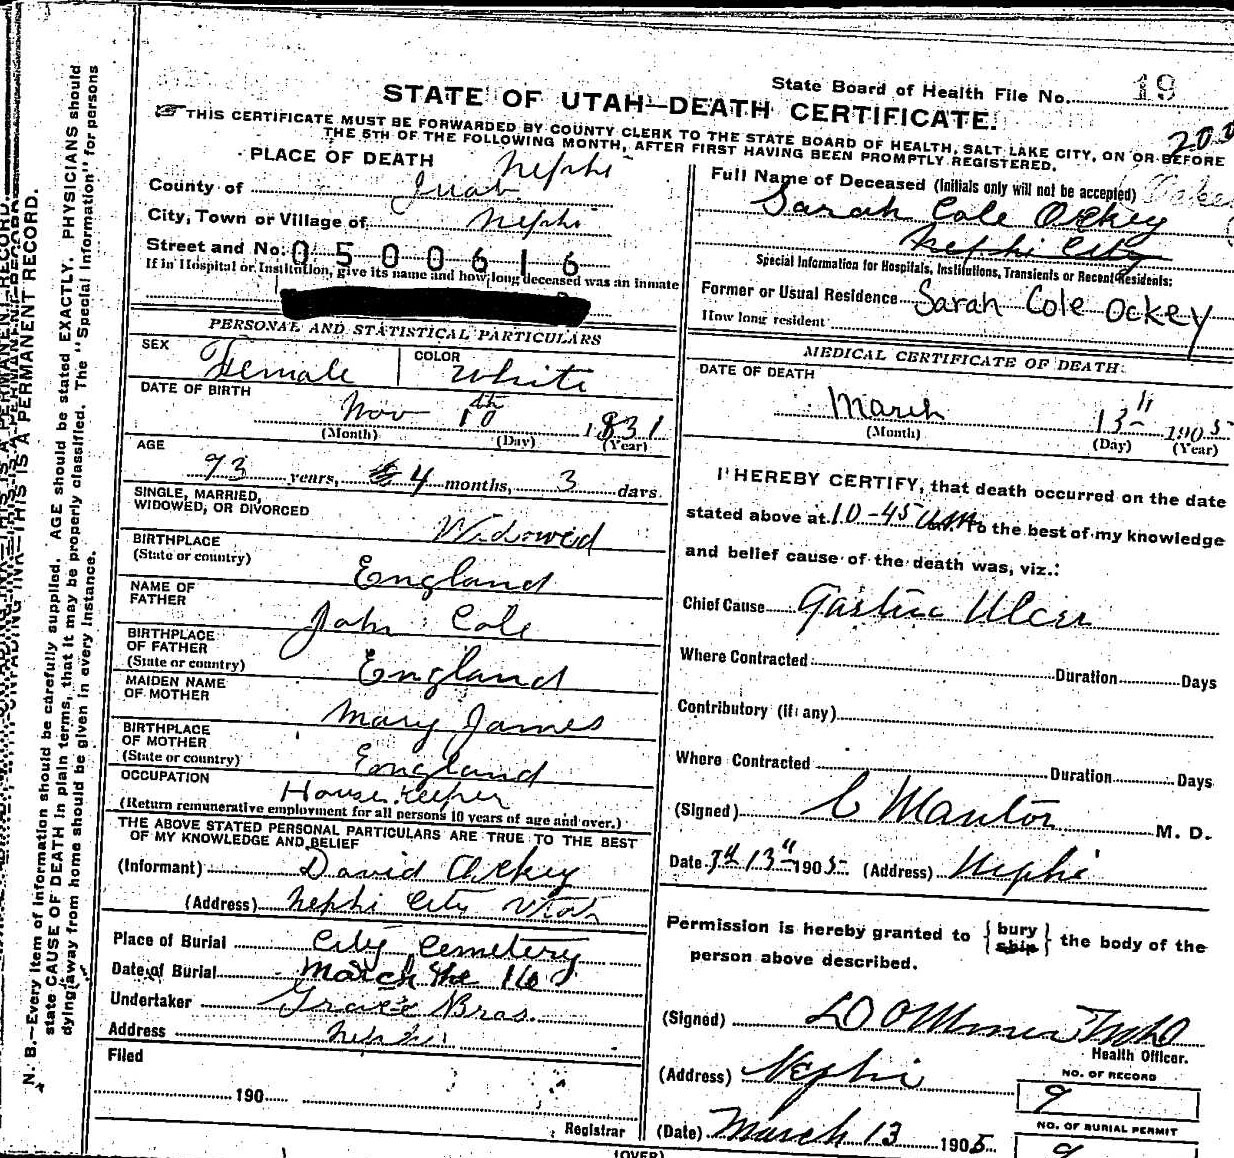 State Board of Health File No. 19
STATE OF UTAH—DEATH CERTIFICATE.
THIS CERTIFICATE MUST BE FORWARDED BY COUNTY CLERK TO THE STATE BOARD OF HEALTH, SALT LAKE CITY, ON OR BEFORE
THE 5TH OF THE FOLLOWING MONTH, AFTER FIRST HAVING BEEN PROMPTLY REGISTERED.
PLACE OF DEATH Nephi
County of Juab
City, Town or Village of Nephi
Street and No. 0500616
If in Hospital or Institution, give its name and how long deceased was an inmate
PERSONAL AND STATISTICAL PARTICULARS
SEX Female COLOR White
DATE OF BIRTH
Nov 10th 1831
(Month) (Day) (Year)
AGE
73 years, 4 months, 3 days.
SINGLE, MARRIED,
WIDOWED, OR DIVORCED Widowed
BIRTHPLACE
(State or country) England
NAME OF
FATHER John Cole
BIRTHPLACE
OF FATHER
(State or country) England
MAIDEN NAME
OF MOTHER Mary James
BIRTHPLACE
OF MOTHER
(State or country) England
OCCUPATION House Keeper
(Return remunerative employment for all persons 10 years of age and over.)
THE ABOVE STATED PERSONAL PARTICULARS ARE TRUE TO THE BEST
OF MY KNOWLEDGE AND BELIEF
(Informant) David Ockey
(Address) Nephi City Utah
Place of Burial City Cemetery
Date of Burial March the 16
Undertaker Bros.
Address Nephi
Filed
190
Registrar
Full Name of Deceased (Initials only will not be accepted)
Sarah Cole Ockey
Nephi City
Special Information for Hospitals, Institutions, Transients or Recent Residents:
Former or Usual Residence Sarah Cole Ockey
How long resident
MEDICAL CERTIFICATE OF DEATH.
DATE OF DEATH
March 13" 1905
(Month) (Day) (Year)
I HEREBY CERTIFY, that death occurred on the date
stated above at 10-45 m. To the best of my knowledge
and belief cause of the death was, viz.:
Chief Cause Gastric Ulcer
Where Contracted Duration Days
Contributory (if any)
Where Contracted Duration Days
(Signed) M. D.
Date 13" 1905 (Address) Nephi
Permission is hereby granted to { bury ship } the body of the
person above described.
(Signed)
Health Officer.
(Address) Nephi
NO. OF RECORD
9
(Date) March 13 1905
NO. OF BURIAL PERMIT
9
(OVER)
N. B.—Every item of information should be carefully supplied. AGE should be stated EXACTLY. PHYSICIANS should
state CAUSE OF DEATH in plain terms, that it may be properly classified. The "Special Information" for persons
dying away from home should be given in every instance.